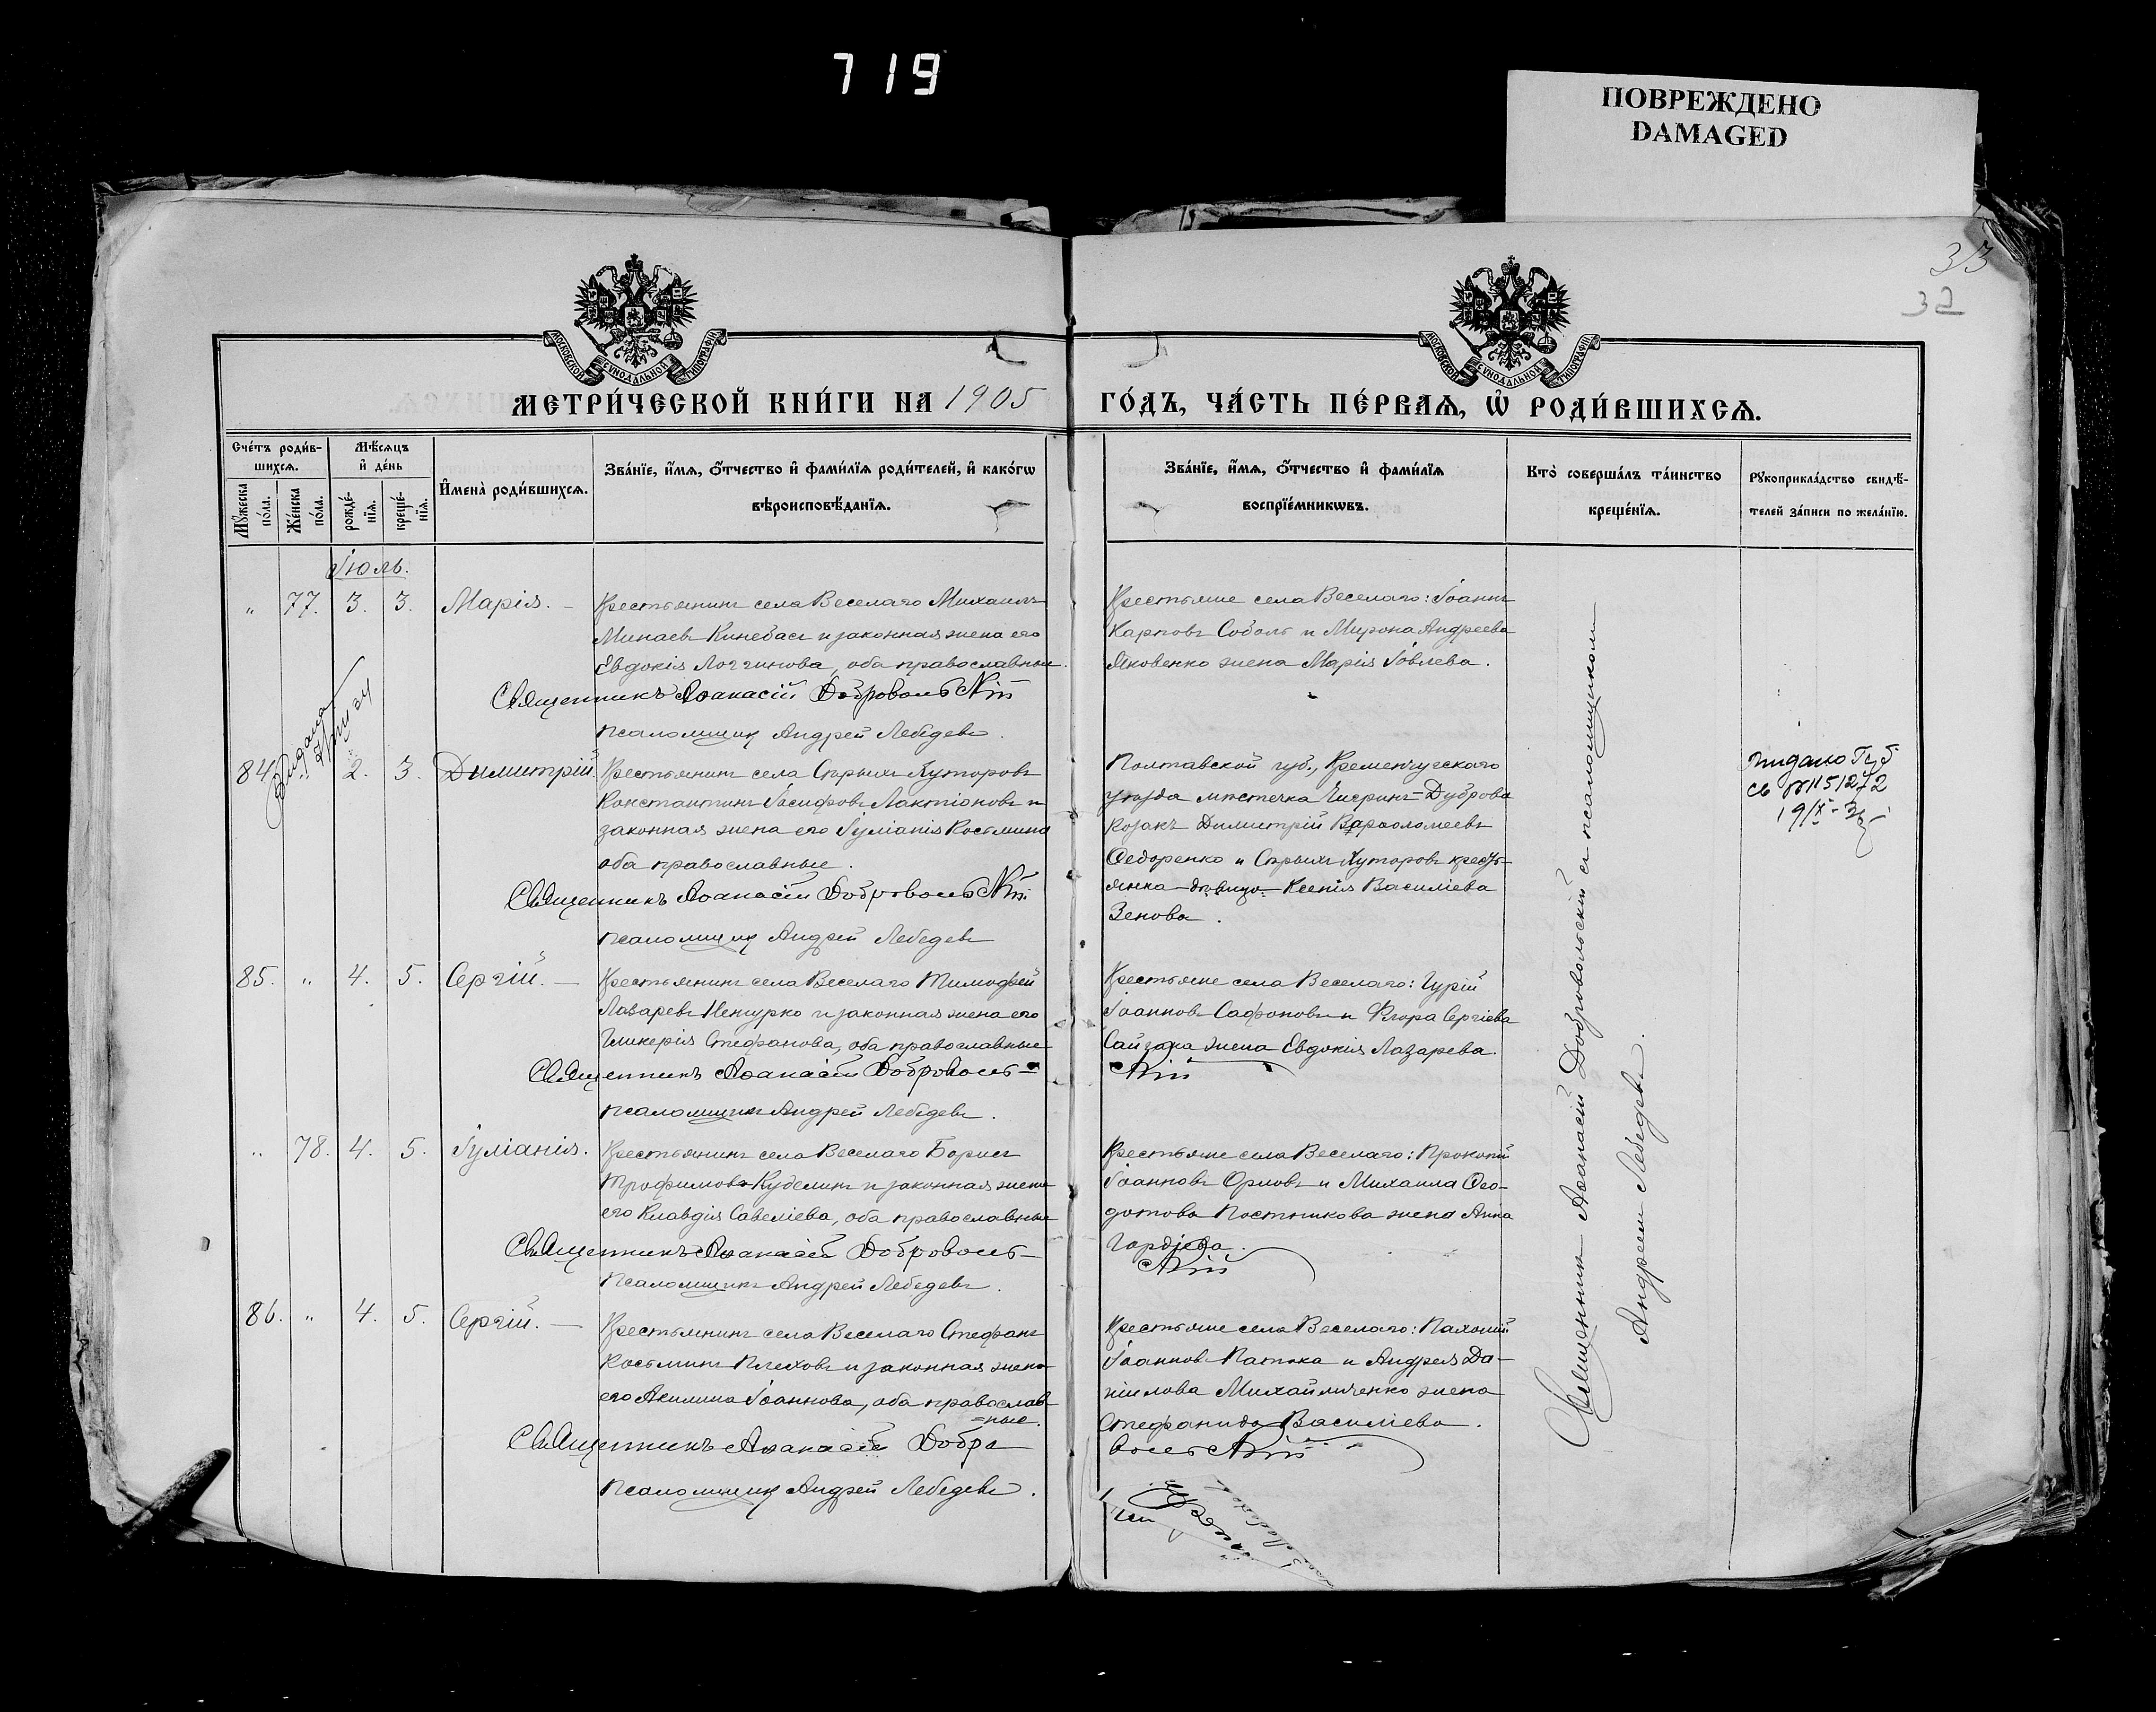 719
ПОВРЕЖДЕНО
DAMAGED
33
32
МОСКОВСКОЙ СУНОДАЛЬНОЙ ТИПОГРАФІИ
МОСКОВСКОЙ СУНОДАЛЬНОЙ ТИПОГРАФІИ
МЕТРИ́ЧЕСКОЙ КНИ́ГИ НА 1905 ГО́ДЪ, ЧА́СТЬ ПЕ́РВАѦ, Ѡ҆ РОДИ́ВШИХСѦ.
Сче́тъ роди́в-
шихсѧ.
Мꙋ́жеска по́ла.
Же́нска по́ла.
Мѣ́сѧцъ и҆ де́нь
рожде́-
нїѧ.
креще́-
нїѧ.
И҆мена̀ роди́вшихсѧ.
Зва́нїе, и҆́мѧ, ѻ҆́тчество и҆ фами́лїѧ роди́телей, и҆ како́гѡ
вѣроисповѣ́данїѧ.
Зва́нїе, и҆́мѧ, ѻ҆́тчество и҆ фами́лїѧ
воспрїе́мникѡвъ.
Кто̀ соверша́лъ та́инство
креще́нїѧ.
Рꙋкоприкла́дство свидѣ́-
телей за́писи по жела́нїю.
Іюль.
" 77. 3. 3. Марія. –
Крестьянинъ села Веселаго Михаилъ
Минаевъ Кинебасъ и законная жена его
Евдокія Логгинова, оба православные.
Священникъ Аѳанасій Добровольскій
псаломщикъ Андрей Лебедевъ.
Крестьяне села Веселаго: Іоаннъ
Карповъ Соболь и Мирона Андреева
Яковенко жена Марія Іовлева.
84. " 2. 3. Димитрій.
Крестьянинъ села Старыхъ Хуторовъ
Константинъ Іосифовъ Лактіоновъ и
законная жена его Іуліанія Косьмина
оба православные.
Священникъ Аѳанасій Добровольскій
псаломщикъ Андрей Лебедевъ
Полтавской губ., Кременчугскаго
уѣзда мѣстечка Чигринъ-Дуброва
козакъ Димитрій Варѳоломеевъ
Ѳедоренко и Старыхъ Хуторовъ кресть-
янка дѣвица Ксенія Василіева
Зенова.
85. " 4. 5. Сергій. –
Крестьянинъ села Веселаго Тимофей
Лазаревъ Ненурко и законная жена его
Гликерія Стефанова, оба православные
Священникъ Аѳанасій Доброволь-
скій
псаломщикъ Андрей Лебедевъ.
Крестьяне села Веселаго: Гурій
Іоанновъ Сафоновъ и Флора Сергіева
Сайгака жена Евдокія Лазарева.
" 78. 4. 5. Іуліанія.
Крестьянинъ села Веселаго Борисъ
Трофимовъ Куделинъ и законная жена
его Клавдія Савеліева, оба православные
Священникъ Аѳанасій Доброволь-
скій
Псаломщикъ Андрей Лебедевъ.
Крестьяне села Веселаго: Прокопій
Іоанновъ Орловъ и Михаила Ѳео-
дотова Постникова жена Анна
Гордіева.
86. " 4. 5. Сергій. –
Крестьянинъ села Веселаго Стефанъ
Косьминъ Плеховъ и законная жена
его Акилина Іоаннова, оба православ-
=ные.
Священникъ Аѳанасій Добро
вольскій
Псаломщикъ Андрей Лебедевъ.
Крестьяне села Веселаго: Пахомій
Іоанновъ Патока и Андрея Да-
ніилова Михайличенко жена
Стефанида Василіева.
Священникъ Аѳанасій Добровольскій съ псаломщикомъ
Андреемъ Лебедевъ.